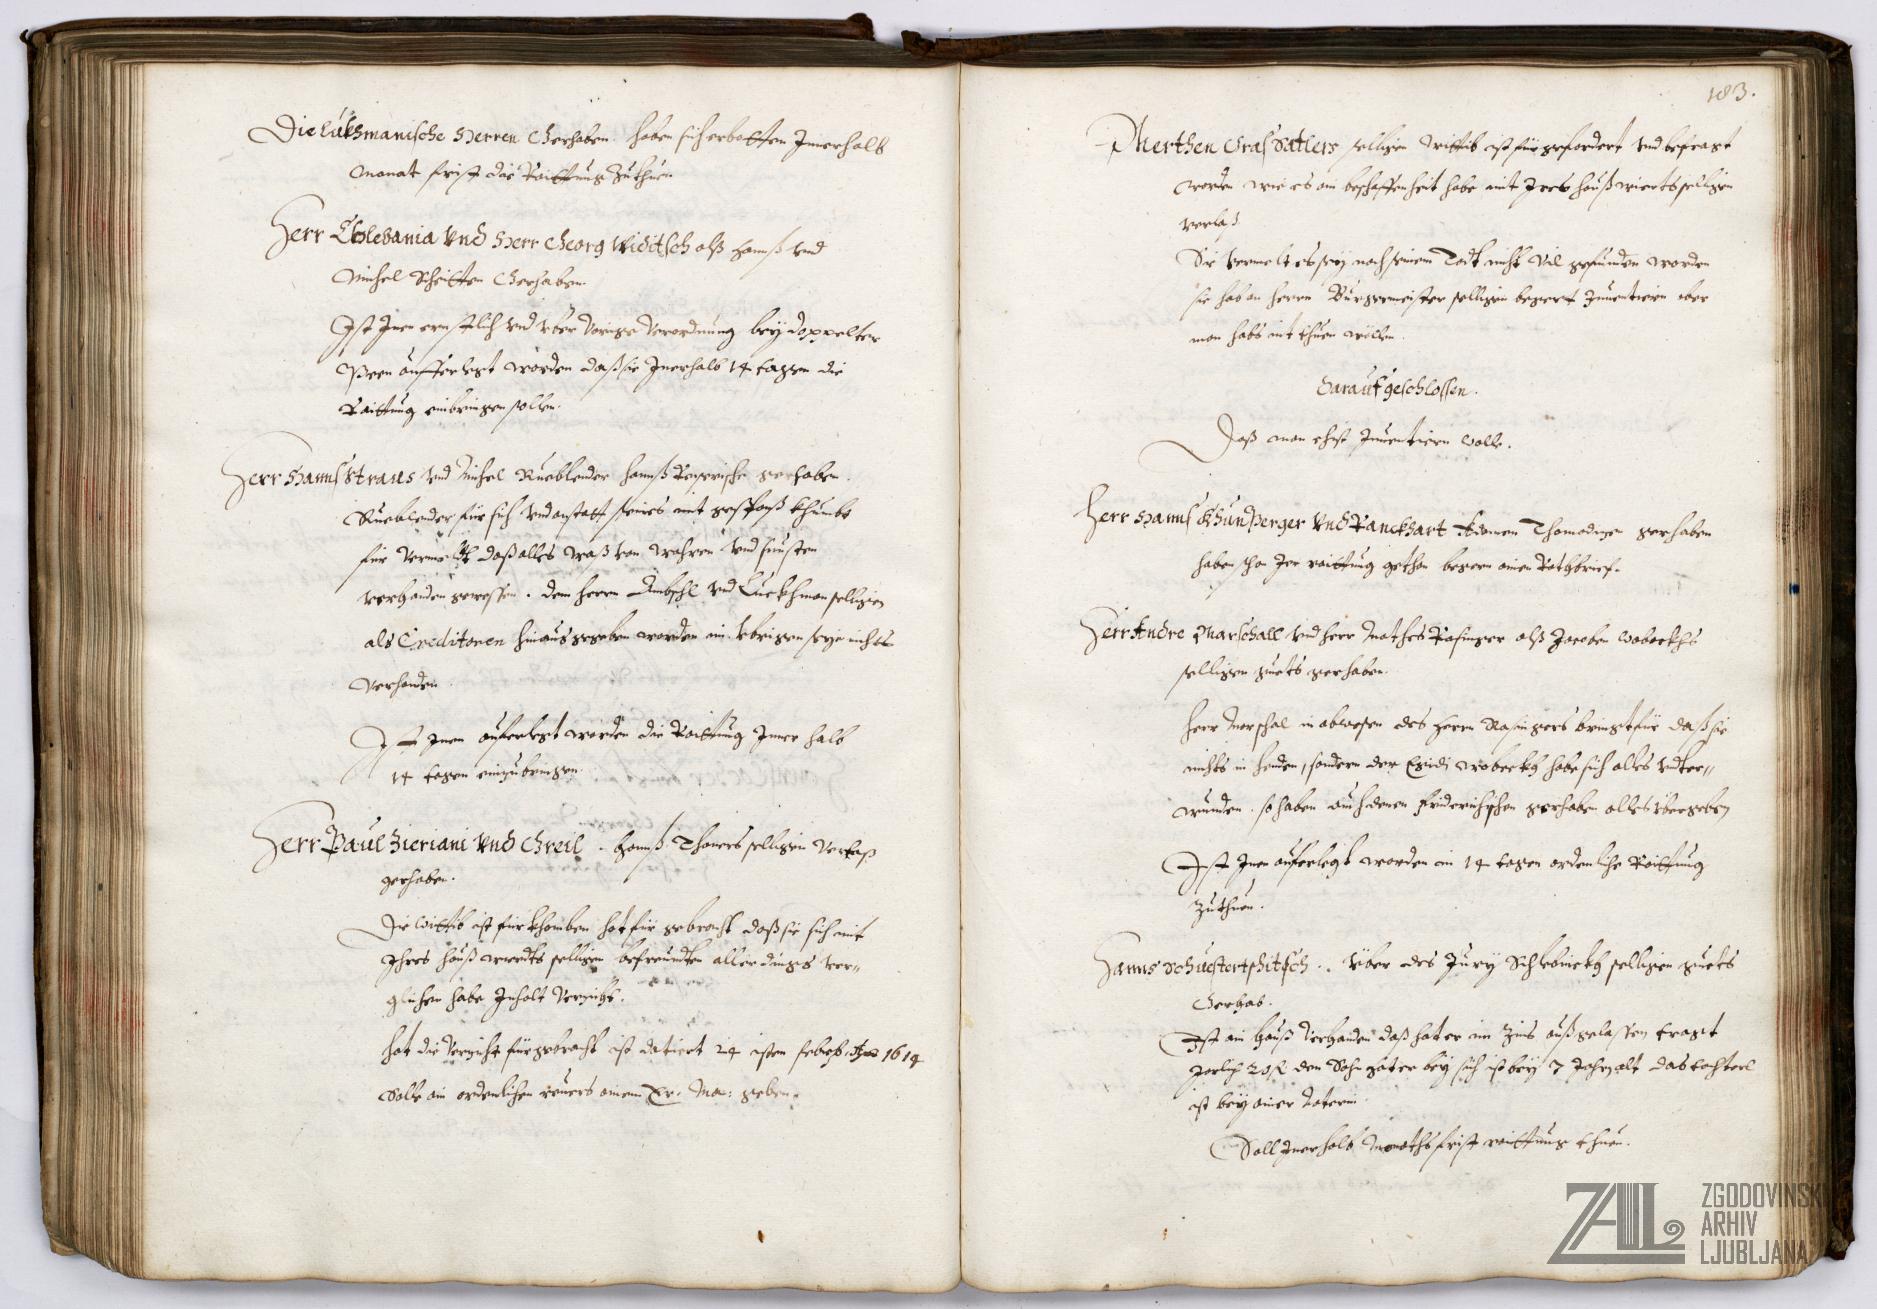 Die Lukhmanische Herren Gerhaben haben sich erbotten Innerhalb
Monat frist die Raittung zuthuen
Herr Chlebania Und Herr Georg Widitsch alß Hannß Vnd
Michel Gerhaben
Ist Inen ernstlich Vnd vber Vorige Verordnung bey doppelter
Peen aufferlegt worden daß sie Inerhalb 14 tagen die
Raittung einbringen sollen.
Herr Hannß Straus Vnd Michel Rueblender Hannß gerhaben.
Rueblender für sich Vnd anstatt seines mit khumbt
für Vermelt daß alles waß von wahren Vnd sunsten
verhanden gewessen. dem herrn Ambschl Vnd Lukhman selligen
als Creditoren hinausgegeben worden im Vbrigen seye nichts
Verhanden.
Ist Inen auferlegt worden die Raittung Inner halb
14 tagen einzubringen
Herr Paul Zieriani Und Greil. Hannß Thoners selligen Verlaß
gerhaben.
Die Wittib ist fürkhomben hat für gebracht daß sie sich mit
Ihres hauß wierdts selligen befreundten aller dings ver=
glichen habe Inhalt Verzicht.
hat die Verzicht fürgebracht ist datiert 24 isten 1614
Solle ein ordenlichen reuers einem Er: Ma: geben.
183.
Merthen Graf Satlers selligen Wittib ist für gefordert Vnd befragt
worden wie es ain beschaffenheit habe mit Ires hauß wierts selligen
verlaß
Sie Vermelt es sey nach seinem Todt nicht Vil gefunden worden
sie hab an herrn Burgermeister selligen begert Inuentieren aber
man habs nit thuen wöllen.
Darauf geschlossen.
Daß man ehist Inuentiern Wolle.
Herr Hannß Und Ranckhart Adamen Thomadizen gerhaben
haben schon Ire raittung gethan begern ainen Rathbrief.
Herr Andre Marschall Vnd herr Mathes Rasinger alß Jacoben Wobeckhs
selligen guets gerhaben.
Herr Marschal in abwesen des herrn Rasingers bringt für daß sie
nichts in henden, sondern der Egidi Wobeckh habe sich alles Vnter=
wunden. so haben auch denen Fridrichischen gerhaben alles übergeben
Ist Inen auferlegt worden in 14 tagen ordenliche Raittung
Zuthuen.
Hanns Schuestertschitsch.. Vber des Jury selligen guets
Gerhab.
Ist ain hauß Verhanden daß hat er im Zins außgelassen tragt
Jarlich 20 fl den Sohn hat er bey sich ist bey 7 Jahr alt das tochterl
ist bey ainer
Soll Inerhalb Monathsfrist raittung thuen.
ZAL
ZGODOVINSKI
ARHIV
LJUBLJANA